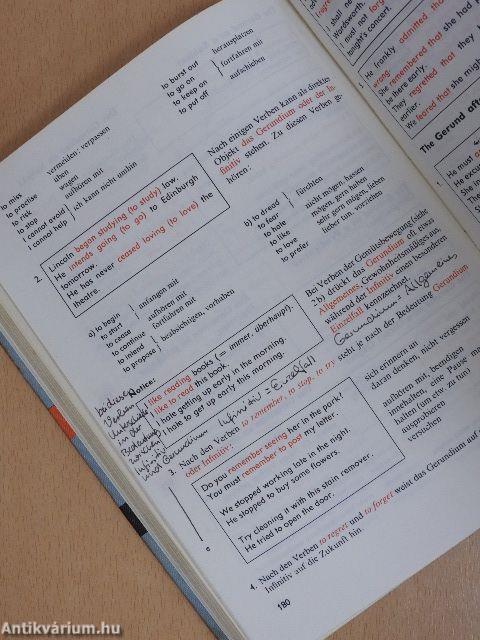 to burst out
to go on
to keep on
to put off
herausplatzen
fortfahren mit
aufschieben
to miss
to practise
to risk
to stop
I cannot avoid
I cannot help
vermeiden; verpassen
üben
wagen
aufhören mit
ich kann nicht umhin
Nach einigen Verben kann als direktes
Objekt das Gerundium oder der In-
finitiv stehen. Zu diesen Verben ge-
hören:
2.
Lincoln began studying (to study) law.
He intends going (to go) to Edinburgh
tomorrow.
He has never ceased loving (to love) the
theatre.
a) to begin
to start
to cease
to continue
to intend
to propose
anfangen mit
aufhören mit
fortfahren mit
beabsichtigen, vorhaben
b) to dread
to fear
to hate
to like
to love
to prefer
fürchten
nicht mögen, hassen
mögen, gern haben
sehr gern mögen, lieben
lieber tun, vorziehen
Notice:
I like reading books (= immer, überhaupt).
I like to read this book.
I hate getting up early in the morning.
I hate to get up early this morning.
Bei Verben der Gemütsbewegung (siehe
2b) drückt das Gerundium oft etwas
Allgemeines, Gewohnheitsmäßiges aus,
während der Infinitiv einen besonderen
Einzelfall kennzeichnet.
Gerundium = Allgemeines
Infinitiv = Einzelfall
bei diesen
Verben
Unterschied
in der
Bedeutung
zwischen
Infinitiv
und Gerundium
3. Nach den Verben to remember, to stop, to try steht je nach der Bedeutung Gerundium
oder Infinitiv:
Do you remember seeing her in the park?
You must remember to post my letter.
We stopped working late in the night.
He stopped to buy some flowers.
Try cleaning it with this stain remover.
He tried to open the door.
sich erinnern an
daran denken, nicht vergessen
aufhören mit, beendigen
innehalten, eine Pause ma-
halten (um etw. zu tun)
ausprobieren
versuchen
4. Nach den Verben to regret und to forget weist das Gerundium auf
Infinitiv auf die Zukunft hin.
180
I shall
Wordsworth.
I must not forget
tonight's concert.
5.
He frankly admitted that
wrong.
She remembered that she had
be there early.
They regretted that they
earlier.
We feared that she might
The Gerund afte
1.
He must
He exc
She
She
Antikvárium.hu